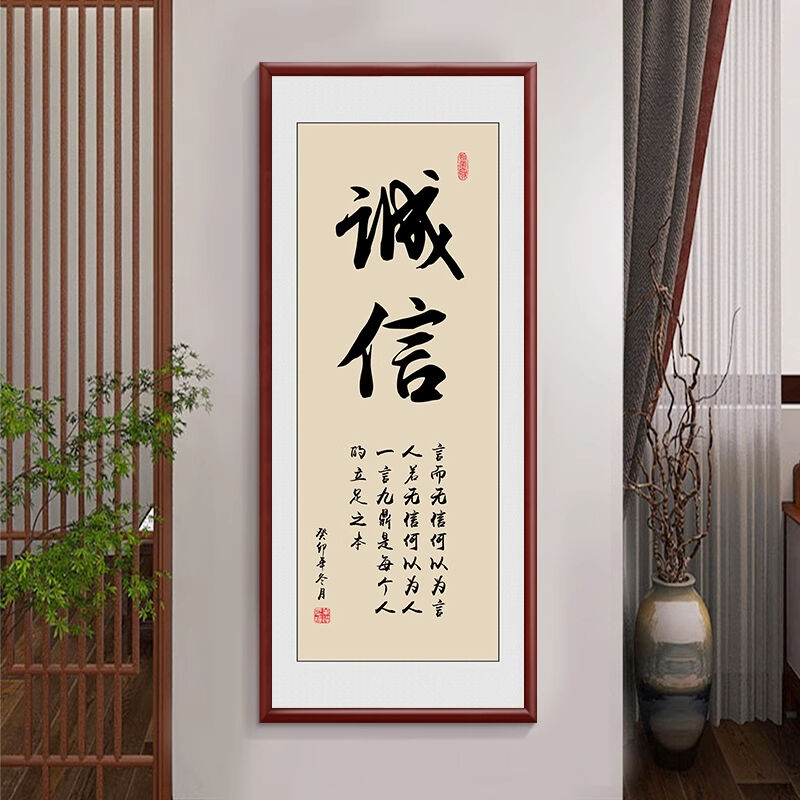 诚信
言而无信何以为言
人若无信何以为人
一言九鼎是每个人
的立足之本
癸卯年冬月